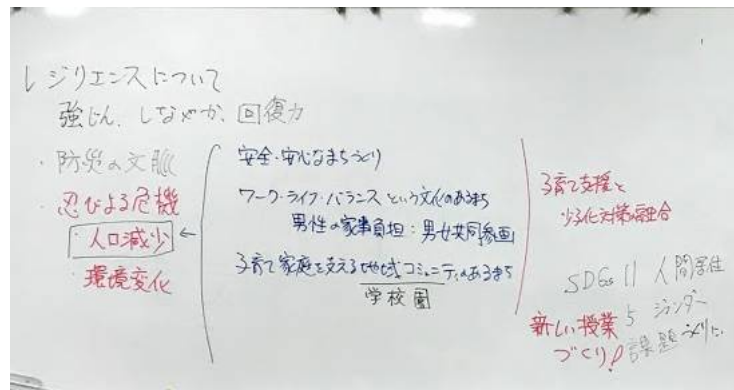 レジリエンスについて
強じん、しなやか、回復力
・防災の文脈
・忍びよる危機
・人口減少 ←
・環境変化
安全・安心なまちづくり
ワーク・ライフ・バランスという文化のあるまち
男性の家事負担:男女共同参画
子育て家庭を支える地域コミュニティのあるまち
学校園
子育て支援と
少子化対策の融合
SDGs 11 人間居住
5 ジェンダー
新しい授業
づくり!
課題づくりに